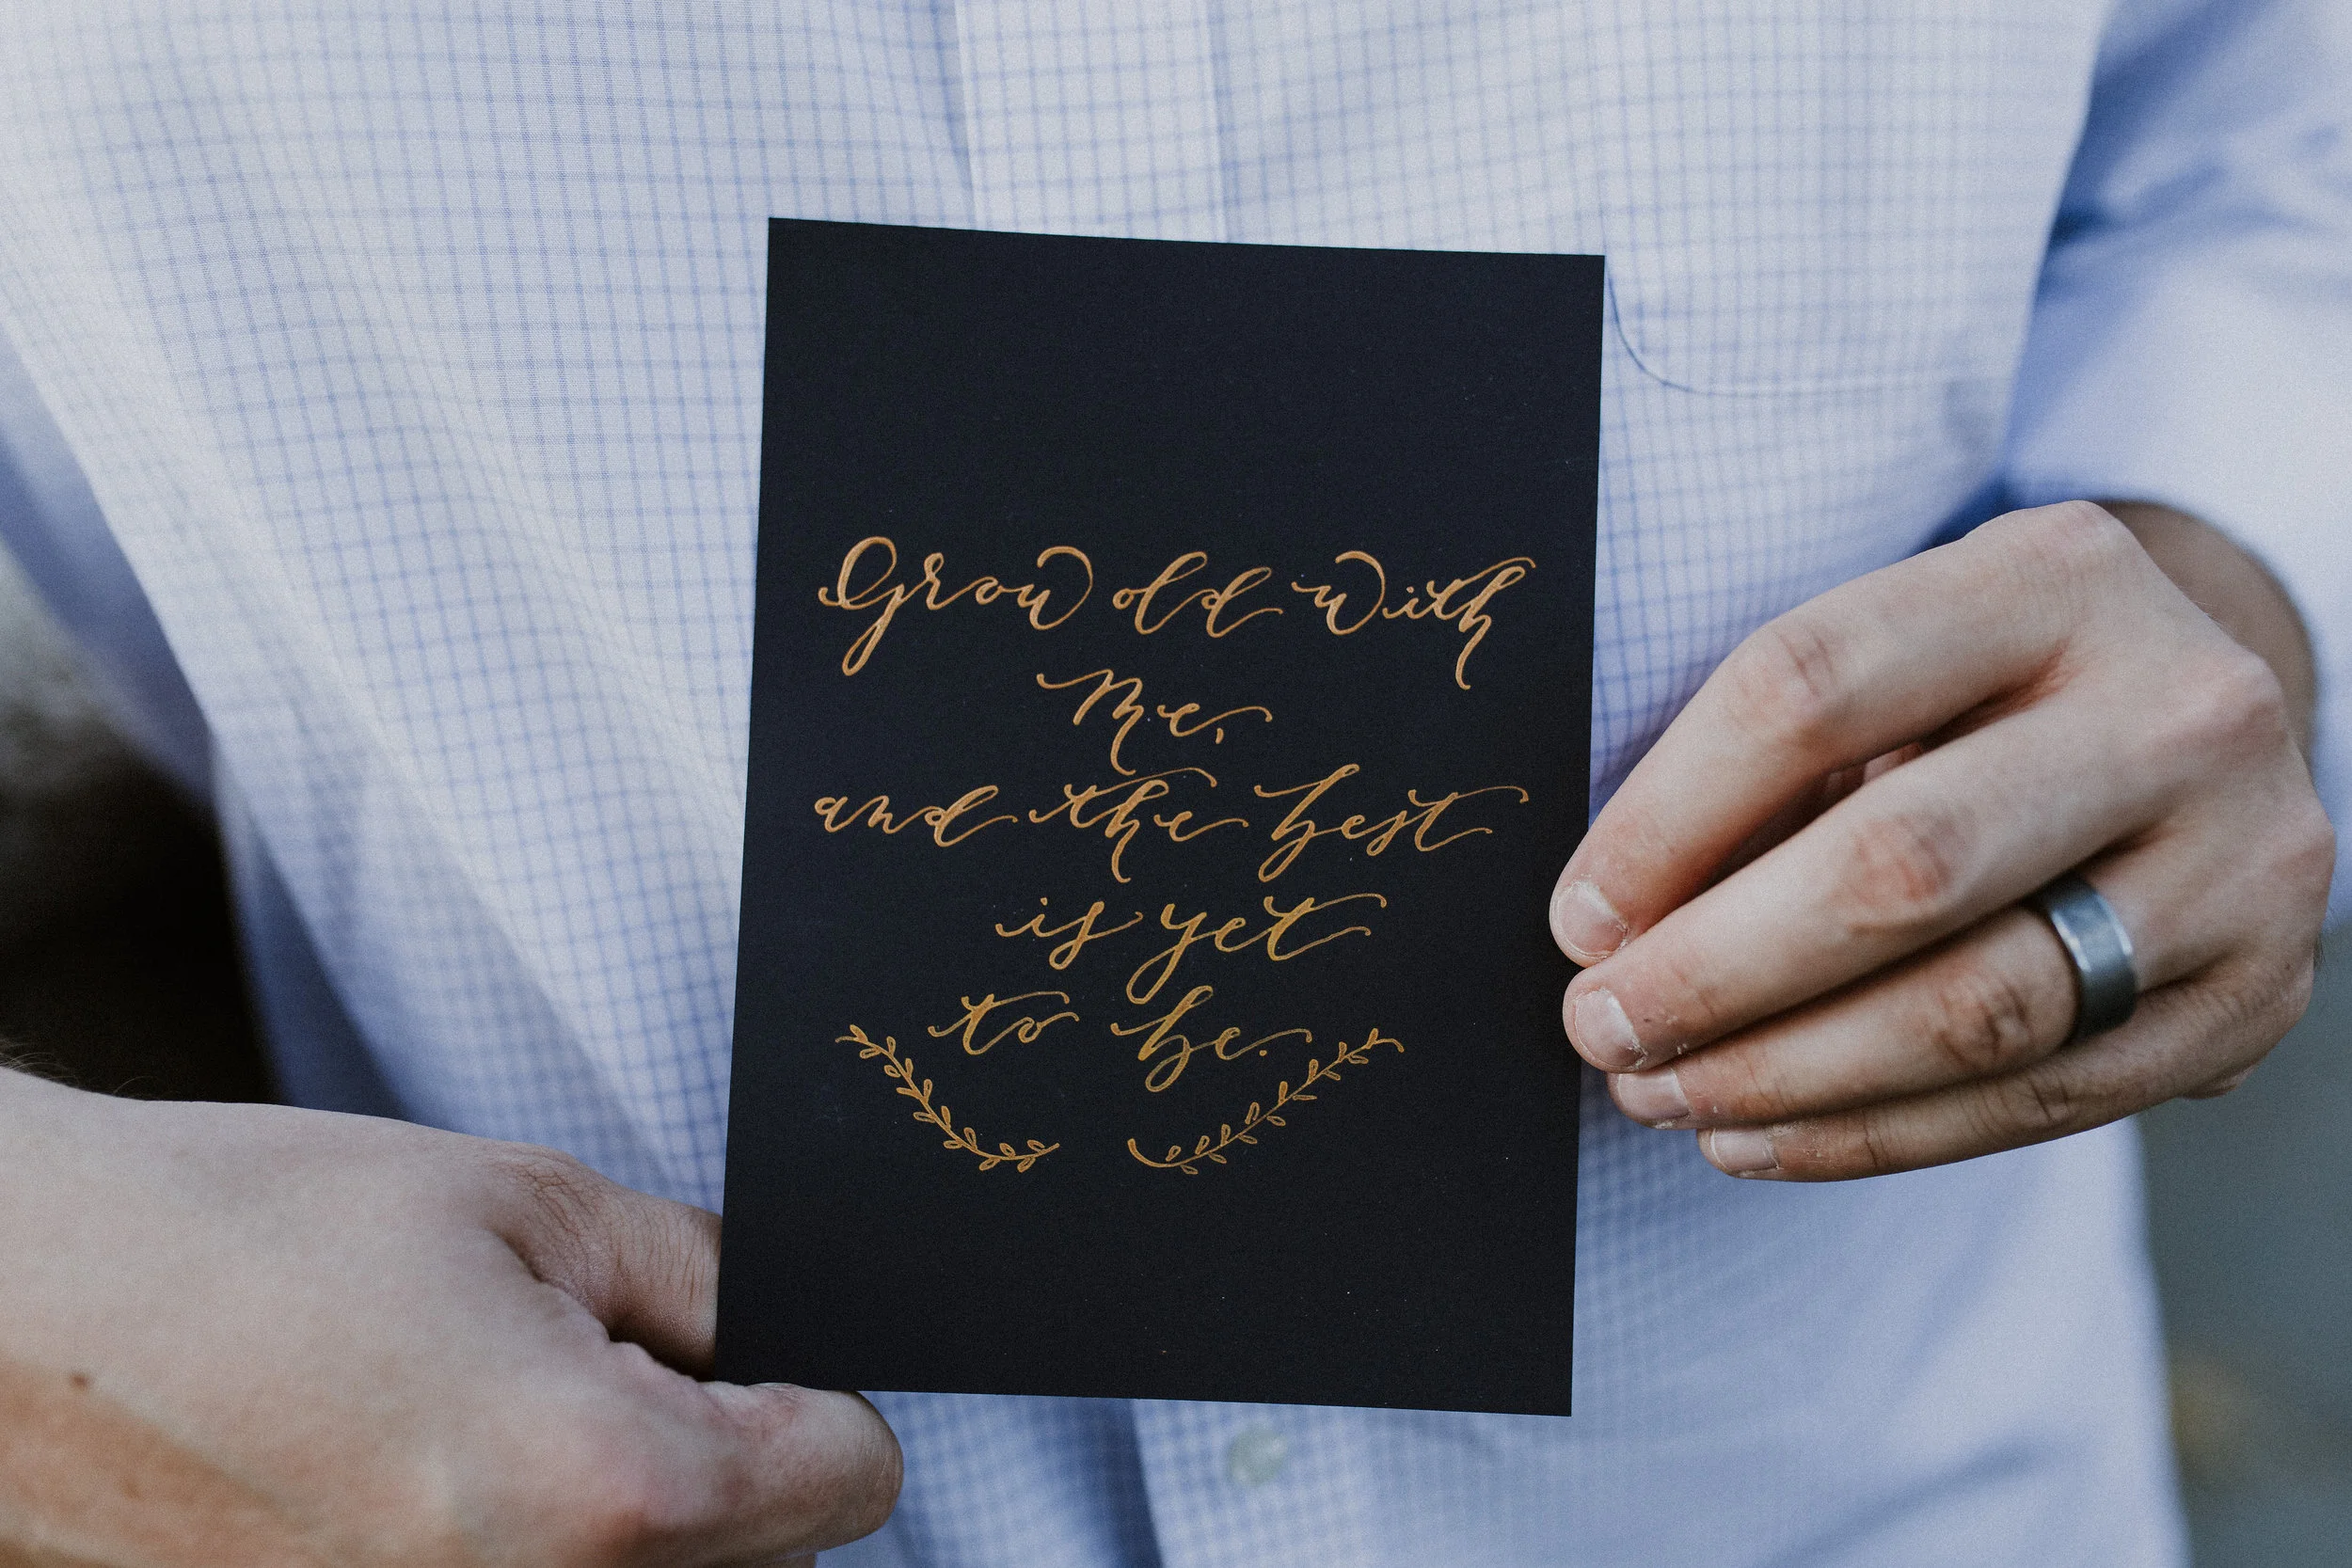 Grow old with
me,
and the best
is yet
to be.